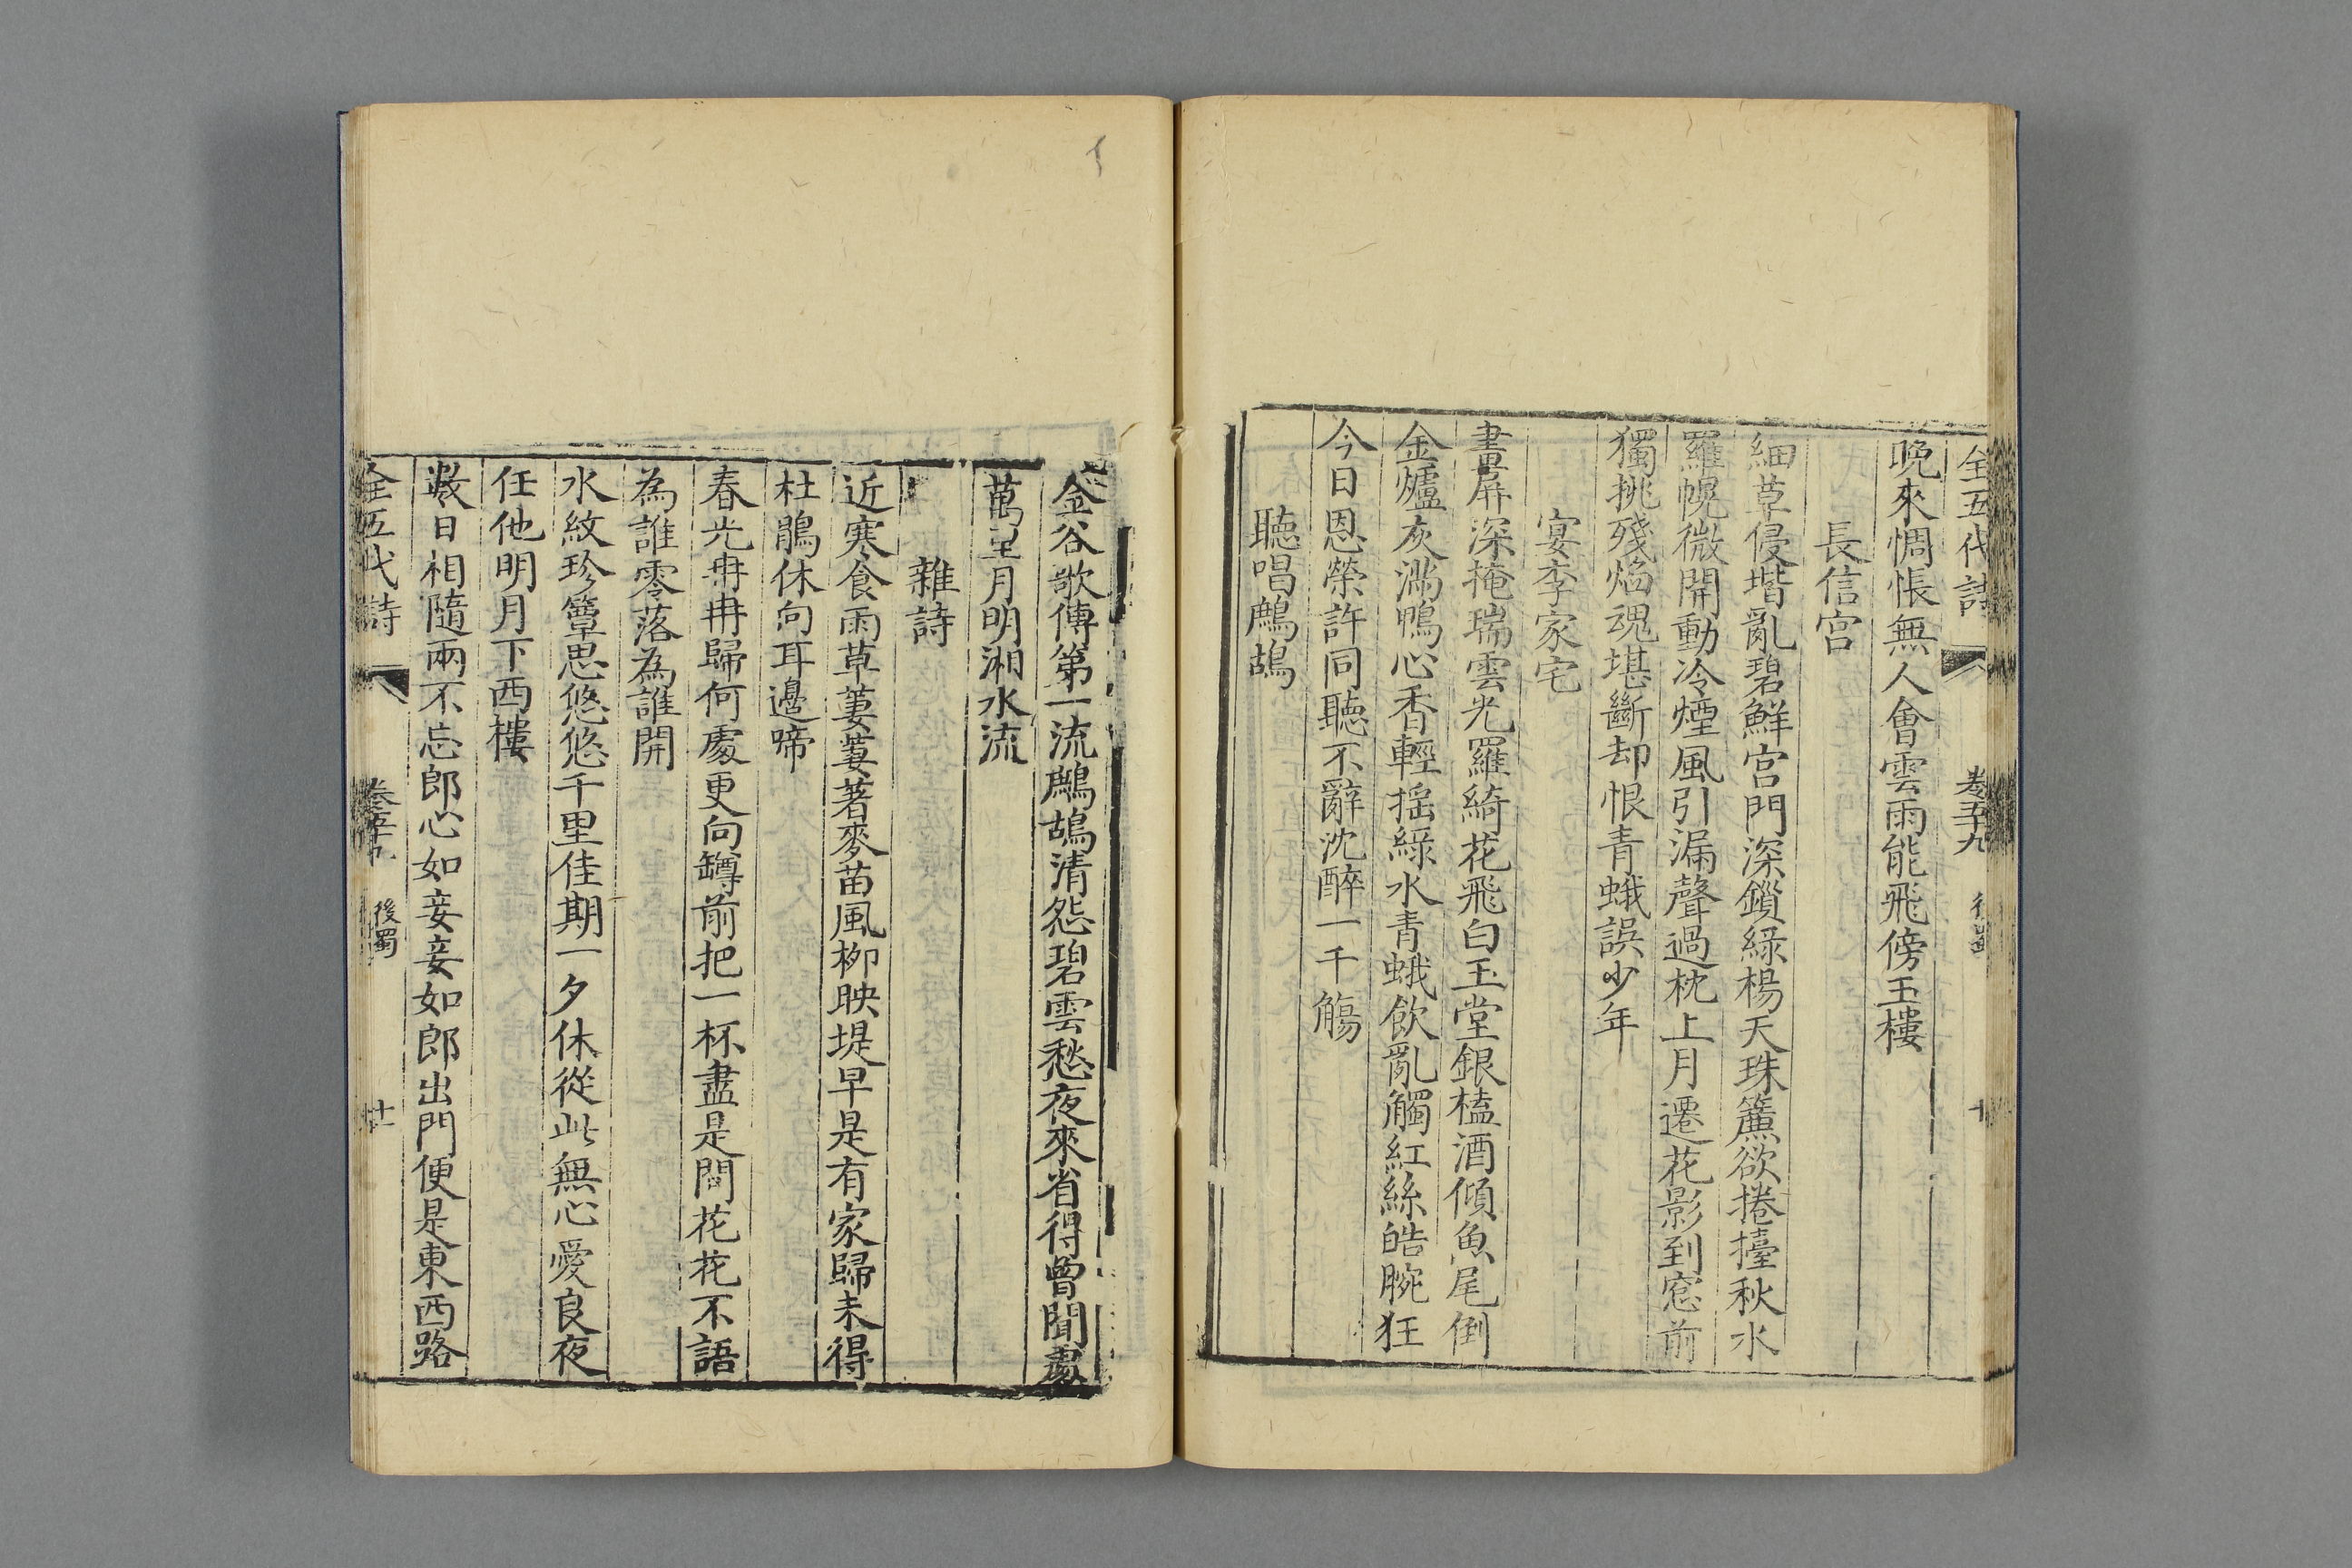 全五代詩 卷五十九
晚來惆悵無人會雲雨能飛傍玉樓
長信宮
細草侵堦亂碧鮮宮門深鎖綠楊天珠簾欲捲擡秋水
羅幌微開動冷煙風引漏聲過枕上月遷花影到窓前
獨挑殘焰魂堪斷却恨青蛾誤少年
宴李家宅
畫屏深掩瑞雲光羅綺花飛白玉堂銀榼酒傾魚尾倒
金爐灰滿鴨心香輕搖綠水青蛾飲亂觸紅絲皓腕狂
今日恩榮許同聽不辭沈醉一千觴
聽唱鷓鴣
金谷歌傳第一流鷓鴣清怨碧雲愁夜來省得曾聞處
萬里月明湘水流
雜詩
近寒食雨草萋萋著麥苗風柳映堤早是有家歸未得
杜鵑休向耳邊啼
春光冉冉歸何處更向罇前把一杯盡是問花花不語
為誰零落為誰開
水紋珍簟思悠悠千里佳期一夕休從此無心愛良夜
任他明月下西樓
數日相隨兩不忘郎心如妾妾如郎出門便是東西路
全五代詩 卷五十九 後蜀 廿